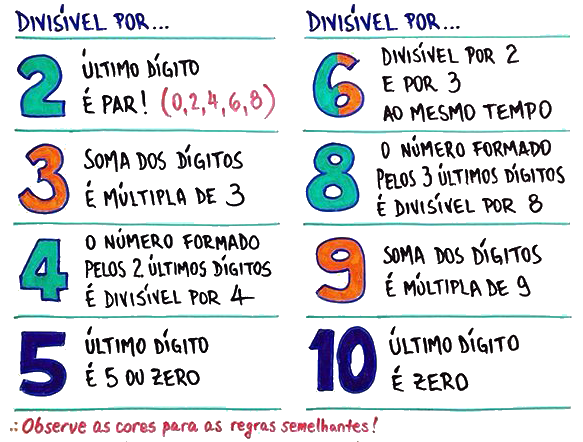 DIVISÍVEL POR...
2
ÚLTIMO DÍGITO
É PAR! (0,2,4,6,8)
3
SOMA DOS DÍGITOS
É MÚLTIPLA DE 3
4
O NÚMERO FORMADO
PELOS 2 ÚLTIMOS DÍGITOS
É DIVISÍVEL POR 4
5
ÚLTIMO DÍGITO
É 5 OU ZERO
DIVISÍVEL POR...
6
DIVISÍVEL POR 2
E POR 3
AO MESMO TEMPO
8
O NÚMERO FORMADO
PELOS 3 ÚLTIMOS DÍGITOS
É DIVISÍVEL POR 8
9
SOMA DOS DÍGITOS
É MÚLTIPLA DE 9
10
ÚLTIMO DÍGITO
É ZERO
.: Observe as cores para as regras semelhantes!